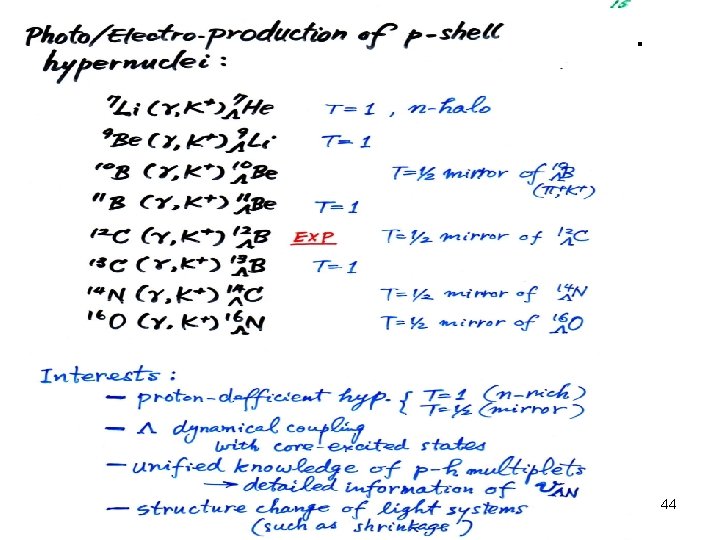 15
Photo/Electro-production of p-shell
hypernuclei :
⁷Li (γ, K⁺) ⁷ΛHe T=1 , n-halo
⁹Be (γ, K⁺) ⁹ΛLi T=1
¹⁰B (γ, K⁺) ¹⁰ΛBe T=½ mirror of ¹⁰ΛB
(π⁺,K⁺)
¹¹B (γ, K⁺) ¹¹ΛBe T=1
¹²C (γ, K⁺) ¹²ΛB EXP T=½ mirror of ¹²ΛC
¹³C (γ, K⁺) ¹³ΛB T=1
¹⁴N (γ, K⁺) ¹⁴ΛC T=½ mirror of ¹⁴ΛN
¹⁶O (γ, K⁺) ¹⁶ΛN T=½ mirror of ¹⁶ΛO
Interests :
— proton-defficient hyp. { T=1 (n-rich)
T=½ (mirror)
— Λ dynamical coupling
with core-excited states
— unified knowledge of p-h multiplets
→ detailed information of VΛN
— structure change of light systems
(such as shrinkage)
44